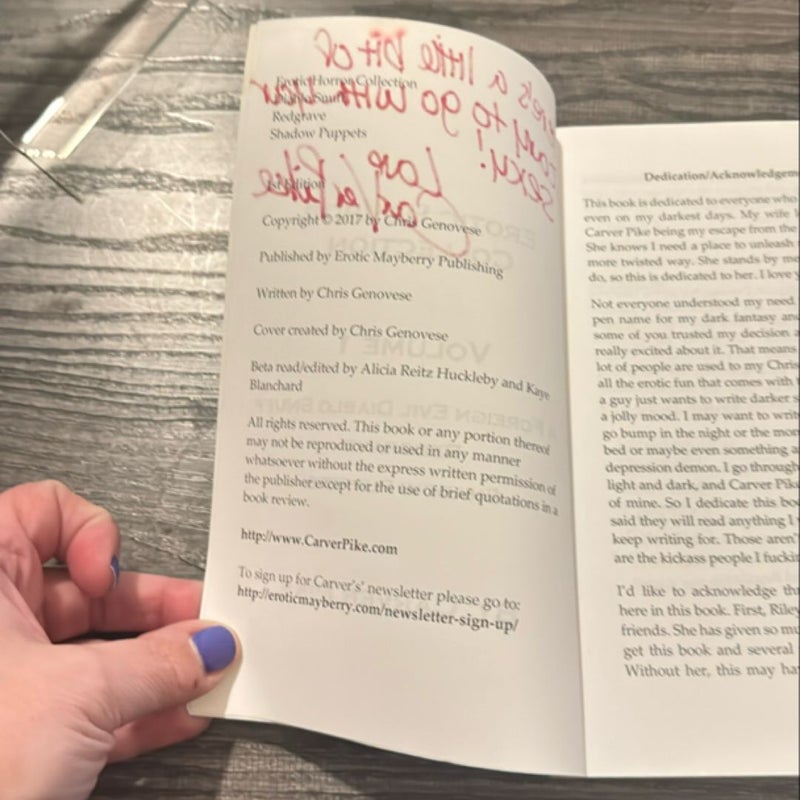 Erotic Horror Collection
Diablo Snuff
Redgrave
Shadow Puppets
1st Edition
Copyright © 2017 by Chris Genovese
Published by Erotic Mayberry Publishing
Written by Chris Genovese
Cover created by Chris Genovese
Beta read/edited by Alicia Reitz Huckleby and Kaye
Blanchard
All rights reserved. This book or any portion thereof
may not be reproduced or used in any manner
whatsoever without the express written permission of
the publisher except for the use of brief quotations in a
book review.
http://www.CarverPike.com
To sign up for Carver's' newsletter please go to:
http://eroticmayberry.com/newsletter-sign-up/
a little bit of
to go with your
sexy!
Love
Carver Pike
EROTIC
COLLECTION
VOLUME 1
FOREIGN EVIL DIABLO SNUFF
Dedication/Acknowledgem
This book is dedicated to everyone who
even on my darkest days. My wife
Carver Pike being my escape from the
She knows I need a place to unleash
more twisted way. She stands by me
do, so this is dedicated to her. I love
Not everyone understood my need
pen name for my dark fantasy and
some of you trusted my decision a
really excited about it. That means
lot of people are used to my Chris
all the erotic fun that comes with
a guy just wants to write darker s
a jolly mood. I may want to write
go bump in the night or the mon
bed or maybe even something a
depression demon. I go through
light and dark, and Carver Pike
of mine. So I dedicate this boo
said they will read anything I
keep writing for. Those aren't
are the kickass people I fuckin
I'd like to acknowledge tha
here in this book. First, Riley
friends. She has given so mu
get this book and several
Without her, this may ha